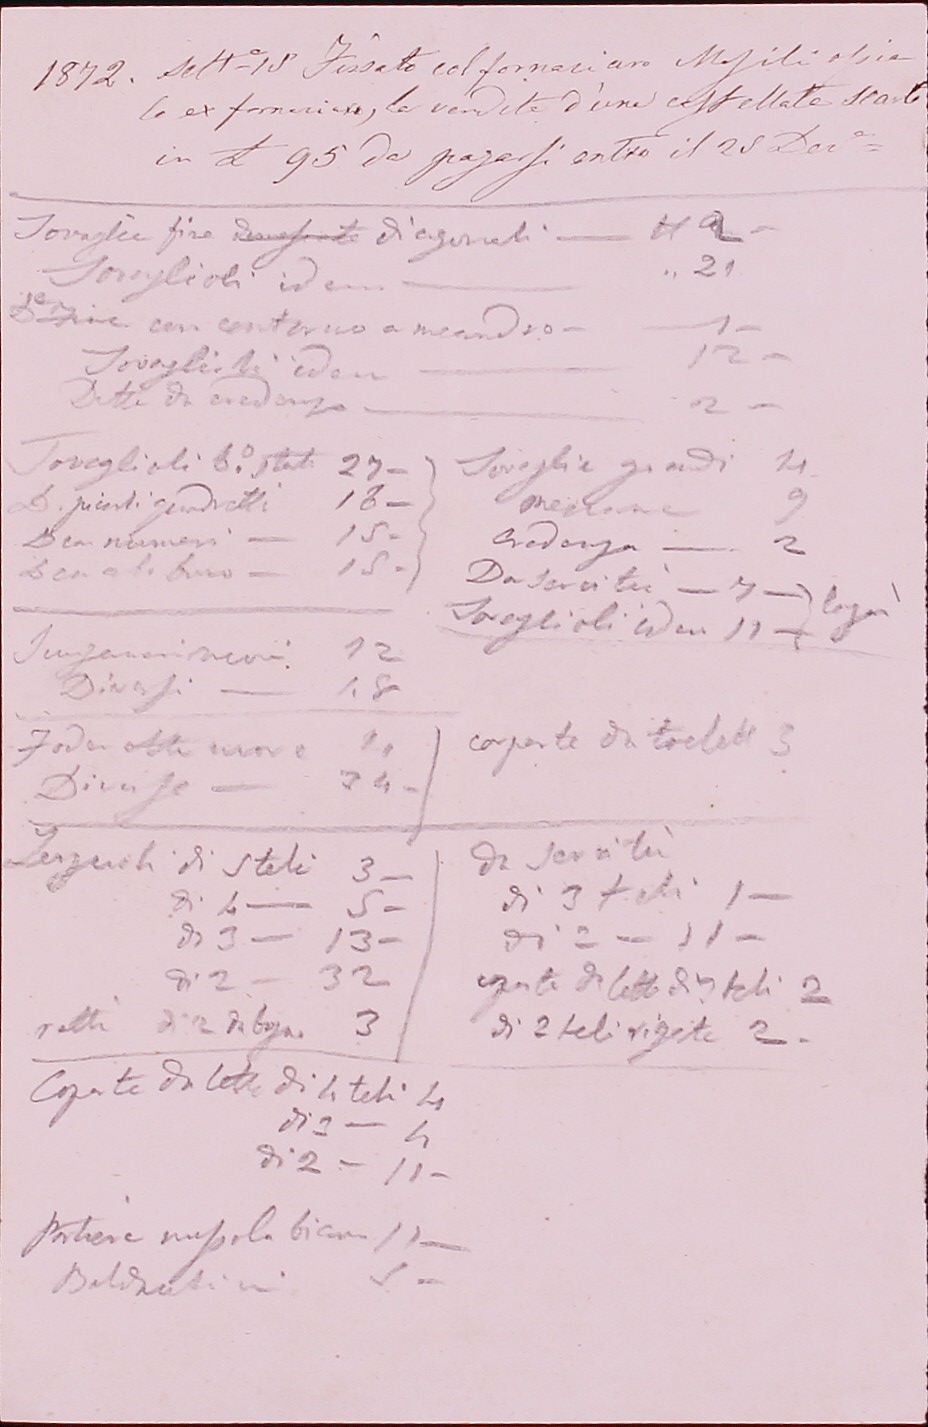 1872. Sett.e 18 Fissato col fornaciaro Masili ossia
lo ex fornaciaro, la vendita d'una castellata scarto
in £ 95 da pagarsi entro il 25 Dec.e =
Tovaglie fine diagonali — N 9 -
Tovaglioli idem — .. 21
con contorno a meandro - — 1 -
Tovaglioli idem — 12 -
Dette da credenza — 2 -
Tovaglioli 27 -
D. piccoli quadretti 18 -
D con numeri — 15 -
D con 15 -
Tovaglie grandi 4
mezzane 9
credenza — 2
Da servitù — 7 —
Tovaglioli idem 11 —
logori
Sciugamani nuovi 12
Diversi — 18
Fodrette nuove 11
Diverse — 34 -
coperte da toelett 3
Lenzuoli di 5 teli 3 —
di 4 — 5 -
di 3 — 13 -
di 2 — 32
rotti di 2 3
da servitù
di 3 teli 1 —
di 2 — 11 -
coperte da letto di 3 teli 2
di 2 teli rigate 2 -
Coperte da letto di 4 teli 4
di 3 — 4
di 2 — 11 -
Portiere mussola bianca 11 —
Baldacchini 5 -